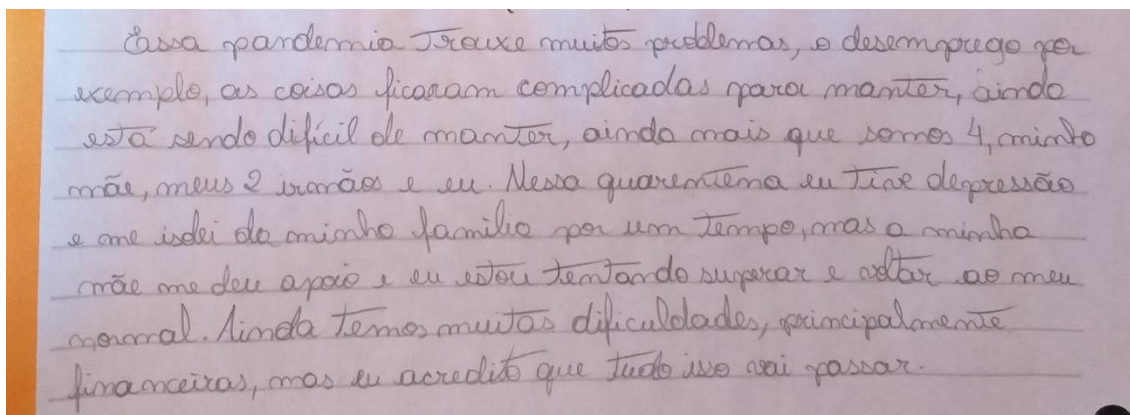 Essa pandemia Trouxe muitos problemas, o desemprego por
exemplo, as coisas ficaram complicadas para manter, ainda
está sendo difícil de manter, ainda mais que somos 4, minha
mãe, meus 2 irmãos e eu. Nessa quarentena eu Tive depressão
e me isolei da minha familia por um Tempo, mas a minha
mãe me deu apoio e eu estou tentando superar e voltar ao meu
normal. Ainda Temos muitas dificuldades, principalmente
financeiras, mas eu acredito que Tudo isso vai passar.